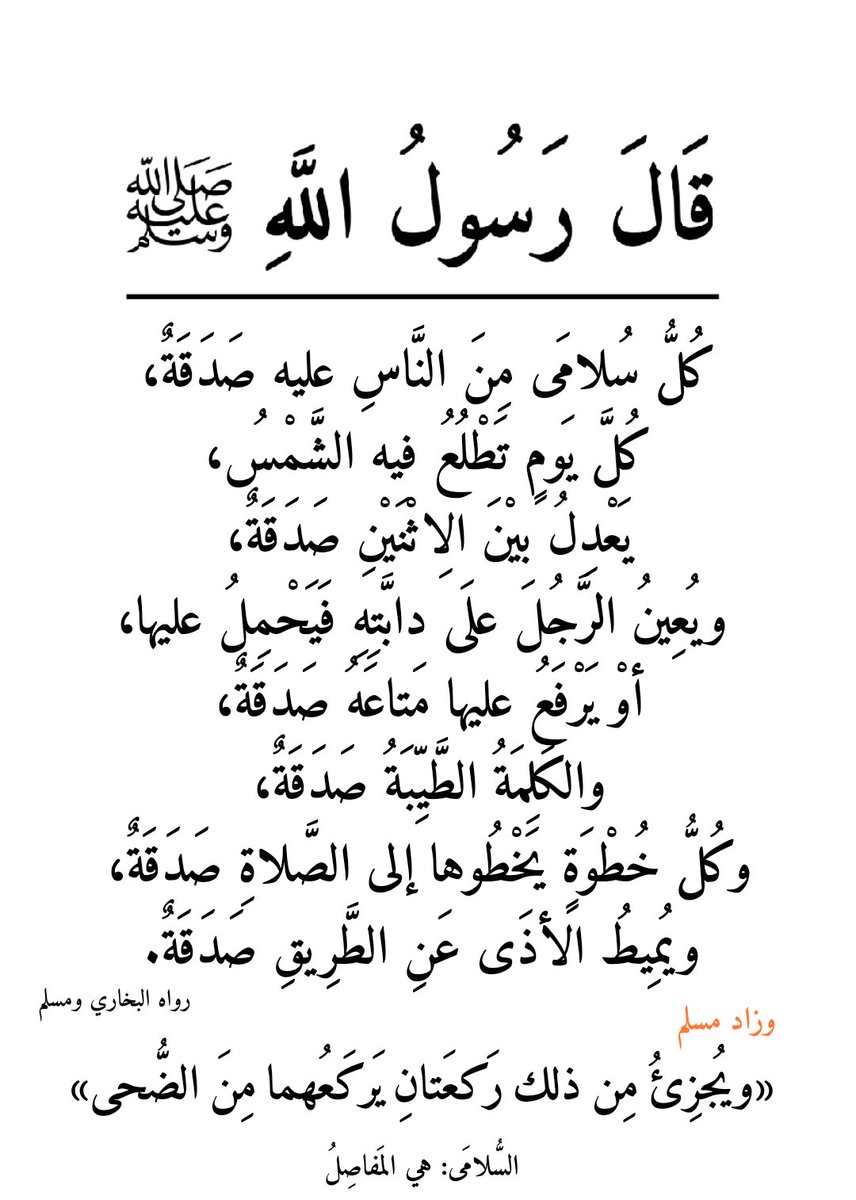 قَالَ رَسُولُ اللَّهِ ﷺ
كُلُّ سُلامَى مِنَ النَّاسِ عليه صَدَقَةٌ،
كُلَّ يَومٍ تَطْلُعُ فيه الشَّمْسُ،
يَعْدِلُ بيْنَ الِاثْنَيْنِ صَدَقَةٌ،
ويُعِينُ الرَّجُلَ علَى دابَّتِهِ فَيَحْمِلُ عليها،
أوْ يَرْفَعُ عليها مَتاعَهُ صَدَقَةٌ،
والكَلِمَةُ الطَّيِّبَةُ صَدَقَةٌ،
وكُلُّ خُطْوَةٍ يَخْطُوها إلى الصَّلاةِ صَدَقَةٌ،
ويُمِيطُ الأذَى عَنِ الطَّرِيقِ صَدَقَةٌ.
رواه البخاري ومسلم
وزاد مسلم
«ويُجزِئُ مِن ذلك رَكعَتانِ يَركَعُهما مِنَ الضُّحى»
السُّلامَى: هي المَفاصِلُ